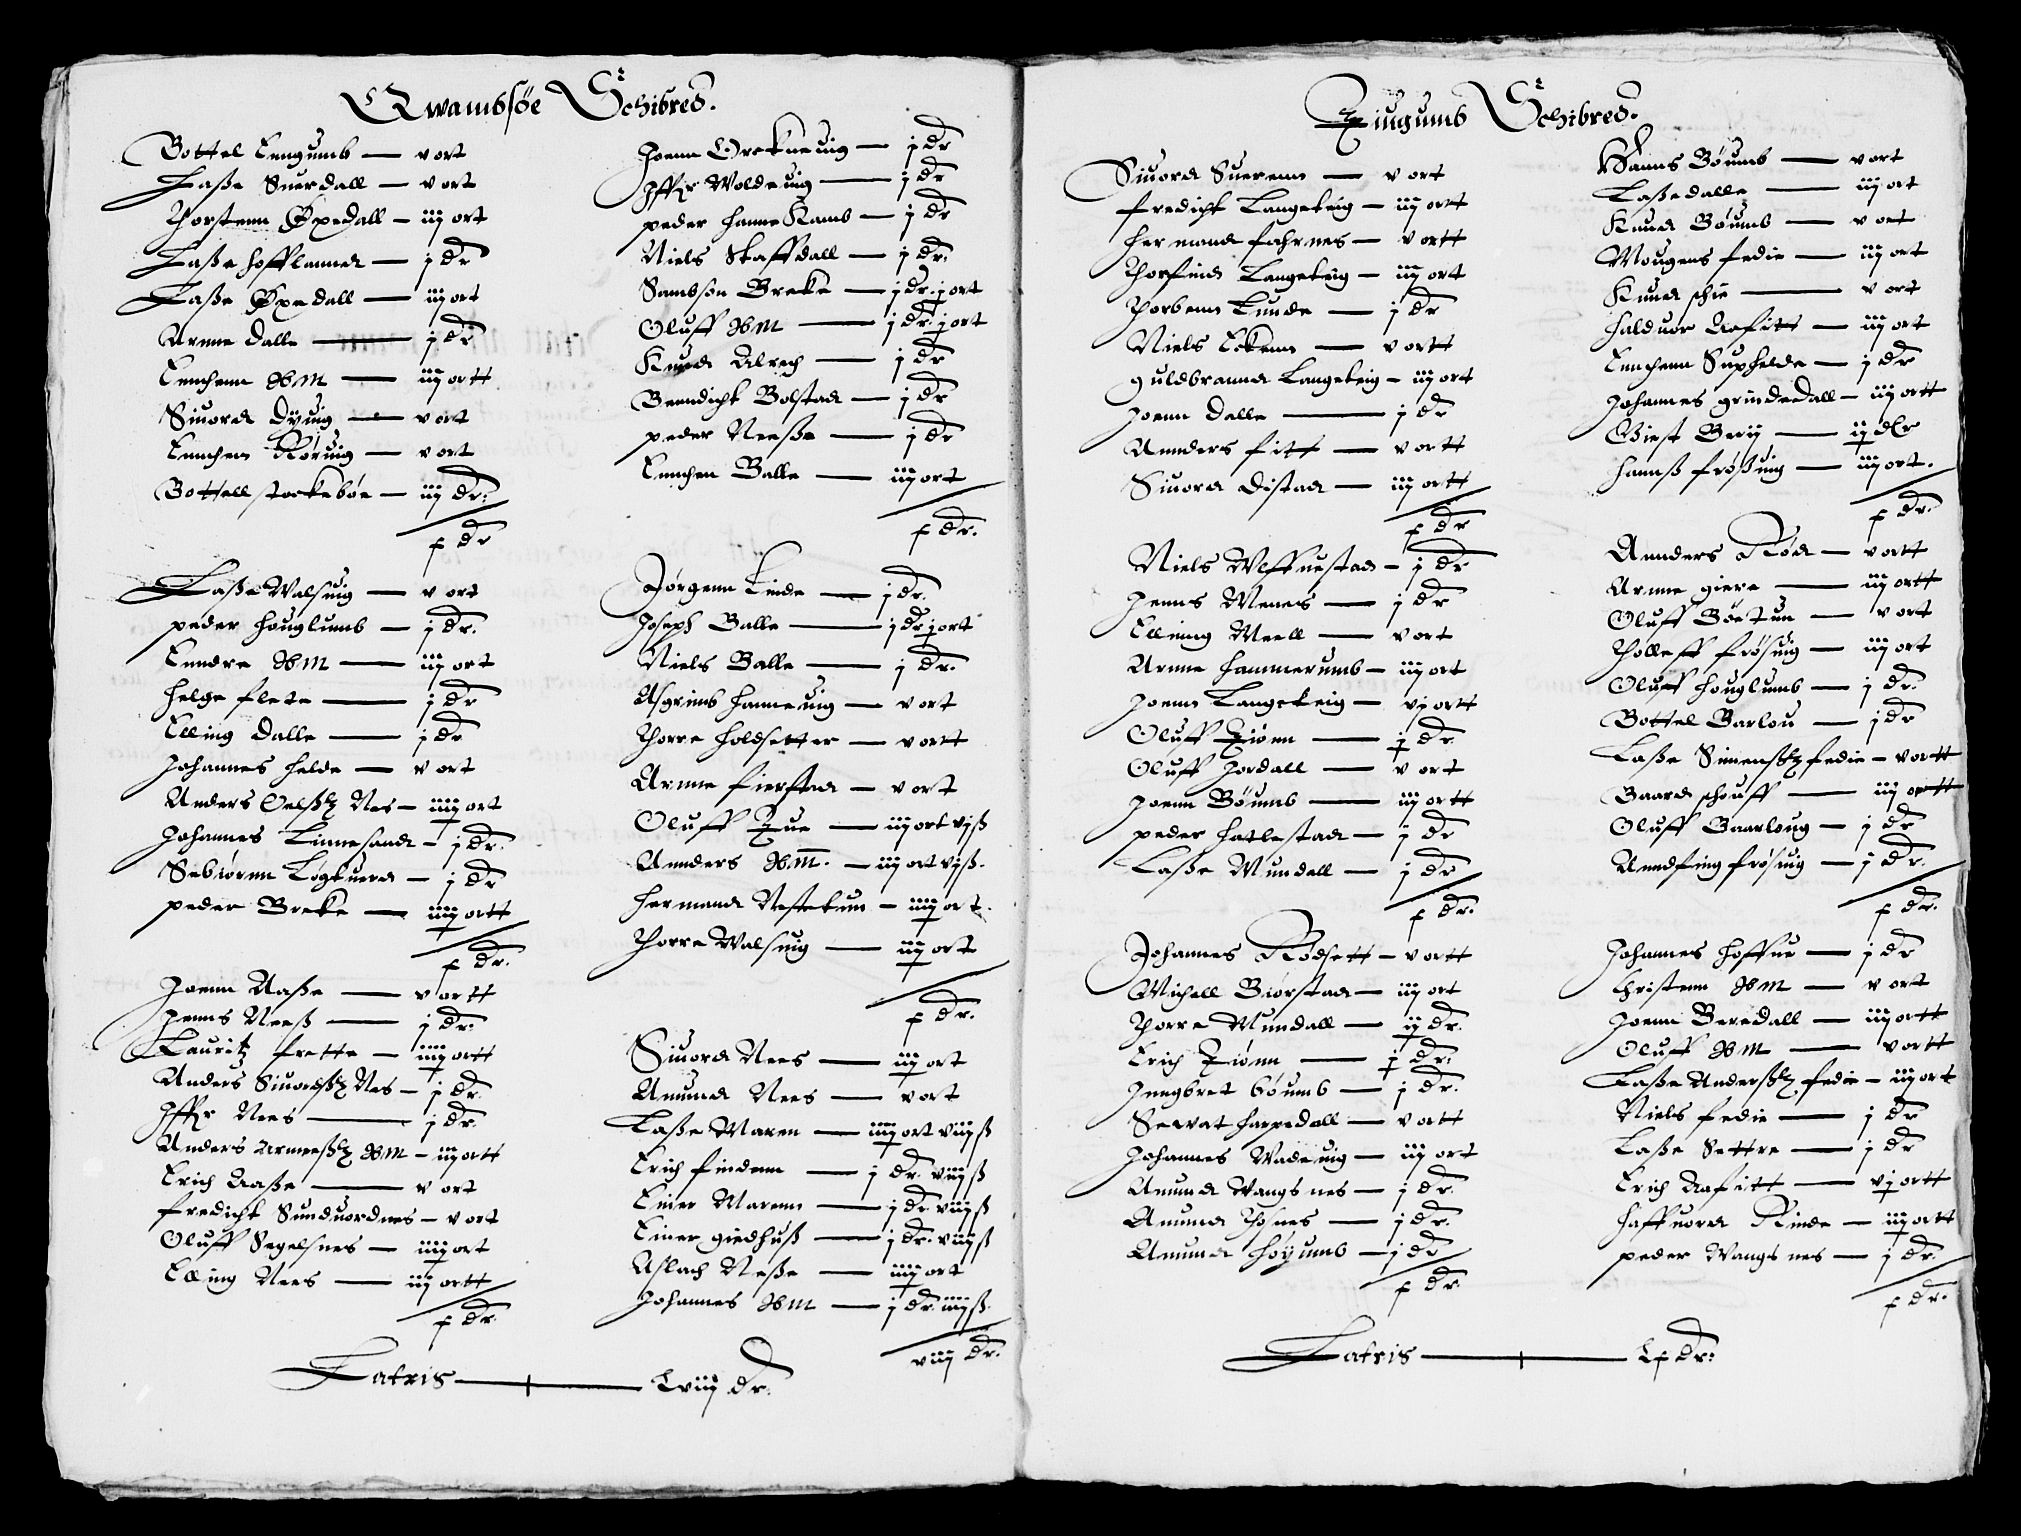 Qwambsøe Schibred.
Bottel Lengumb — v ort
Laße Suerdall — v ort
Thorstenn Øxedall — iij ort
Laße Hofflannd — j dr
Laße Øxedall — iij ort
Arnne Dalle — j dr
Lunchenn ibm — iij ortt
Siuord Dÿuig — v ort
Lunchen Røruig — v ort
Bottell stockebøe — iij dr.
x dr
Laße Walsuig — v ort
peder Houglumb — j dr.
Enndre ibm — iij ort
Helge flete — j dr
Elling Dalle — j dr
Johannes Helde — v ort
Anders Oelß Nes — iiij ort
Johannes Linnesand — j dr.
Sebiørnn Løgkuerd — j dr
peder Breke — iiij ortt
x dr.
Joenn Aaße — v ortt
Jenns Neeß — j dr.
Lauritz frette — iiij ortt
Anders Siuordß Nes — j dr.
Iffr Nees — j dr.
Anders Arneß ibm — iij ortt
Erich Aaße — v ort
fredicht Sunduordnes — v ort
Oluff Segelsnes — iiij ort
Elling Nees — iij ortt
x dr.
Joenn Orekneuig — j dr
Iffr Woldeuig — j dr
peder HanneKamb — j dr
Niels Skaffdall — j dr.
Sambson Breke — j dr. j ort
Oluff ibm — j dr. j ort
Knud Alrech — j dr
Benndicht Bolstad — j dr
peder Neeße — j dr
Lunchen Balle — iij ort
x dr.
Jørgenn Linde — j dr.
Joseph Balle — j dr j ort
Niels Balle — j dr.
Asgrimb Hanneuig — v ort
Thorre Holdsetter — v ortt
Arnne fierstad — v ort
Oluff Tue — iij ort vj ß
Annders ibm. — iij ort vj ß.
Hermand Nestekun — iiij ort.
Thorre Walsuig — iij ort
x dr.
Siuord Nees — iij ort
Amund Nees — v ort
Laße Maren — iiij ort viij ß
Erich findenn — j dr. viij ß
Einer Marenn — j dr viij ß
Einer giedhuß — j dr. viij ß
Aslach Neße — iiij ort
Johannes ibm — j dr. iiij ß.
viij dr.
Latris — Lviij dr.
Tiugumb Schibred.
Siuord Suerenn — v ort
fredicht Langeteig — iij ortt
Hermand fahrnes — v ortt
Thorfind Langeteig — iij ort
Thorbenn Lunde — j dr
Niels Eckenn — v ortt
guldbrannd Langeteig — iij ort
Joenn Dalle — j dr
Annders fitt — v ortt
Siuord Distad — iij ortt
x dr
Niels Ulffuestad — j dr
Jenns Menes — j dr
Elling Meell — v ort
Arnne Hammerumb — iij ort
Joenn Langeteig — vj ortt
Oluff Tiønn — j dr.
Oluff Jordall — v ort
Joenn Bøumb — iij ortt
peder Hatlestad — j dr
Laße Mundall — j dr
x dr.
Johannes Rødsett — v ortt
Michell Biørstad — iij ort
Thorre Mundall — ij dr.
Erich Tiønn — j dr.
Jnngbret bøumb — j dr.
Sewat Harpedall — v ortt
Johannes Wadeuig — iij ort
Amund Wangsnes — j dr.
Amund Thosnes — j dr.
Amund Høyumb — j dr
x dr.
Hanns Bøumb — v ort
Laße dalle — iij ort
Knud Bøumb — v ort
Mougens fedie — iij ort
Knud schie — v ort
Halduor Aafitt — iij ort
Lunchenn Supphelde — j dr
Johannes grindedall — iij ortt
Giest Berij — ij dlr
Hannß frøßuig — iij ort.
x dr.
Annders Rød — v ortt
Arnne giere — iij ortt
Oluff Bøetun — v ort
Tolleff frøsuig — iij ort
Oluff Houglumb — j dr.
Bottel Barlou — j dr
Laße Simensß fedie — v ortt
Baard schouff — iij ortt
Oluff Baarloug — j dr
Anndfing frøsuig — j dr.
x dr.
Johannes Hoffue — j dr
Christenn ibm — v ort
Joenn Beredall — iij ortt
Oluff ibm — v ortt
Laße Andersß fedie — iij ort
Niels fedie — j dr
Laße Settre — j dr
Erich Aafitt — vj ortt
Haffuord Rinde — iij ortt
peder Wangsnes — j dr.
x dr.
Latris — Lx dr.